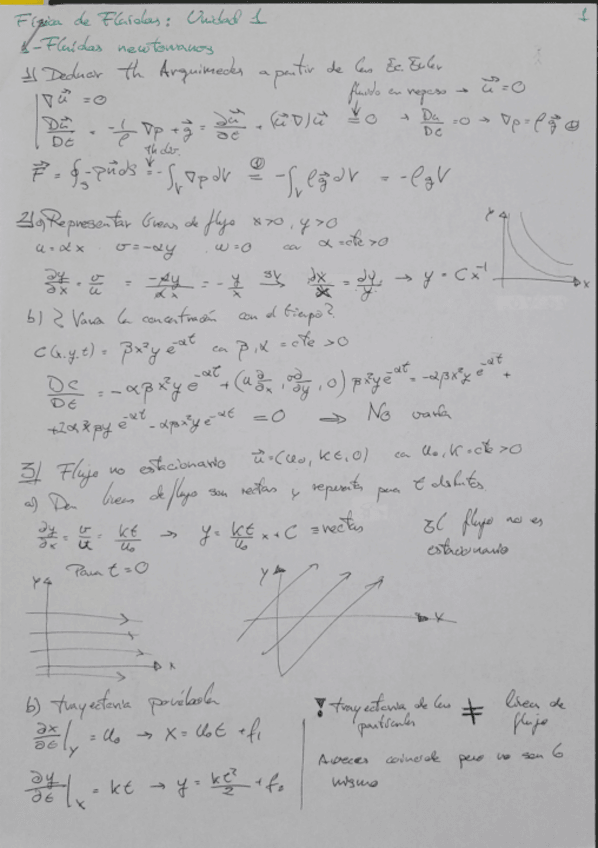 Física de Fluidos: Unidad 1
1
1-Fluidos newtonianos
1) Deducir th Arquímedes a partir de las Ec. Euler
fluido en reposo → u⃗ = 0
∇u⃗ = 0
Du⃗/Dt = -1/ρ ∇p + g⃗ = ∂u⃗/∂t + (u⃗∇)u⃗ = 0 → Du/Dt = 0 → ∇p = ρg⃗ ①
th div.
F⃗ = ∮s -pn⃗ds = -∫v ∇p dV ①= -∫v ρg⃗ dV = -ρgV
2) a) Representar líneas de flujo x>0, y>0
u = αx v = -αy w = 0 con α = cte > 0
∂y/∂x = v/u = -αy/αx = -y/x → ∂x/x = ∂y/y → y = Cx⁻¹
y
x
b) ¿Varía la concentración con el tiempo?
C(x,y,t) = βx²y e^-αt con β, α = cte > 0
DC/Dt = -αβx²y e^-αt + (u ∂/∂x, v ∂/∂y, 0) βx²y e^-αt = -αβx²y e^-αt +
+2αx βy e^-αt - αβx²y e^-αt = 0 ⇒ No varía
3) Flujo no estacionario u⃗ = (u₀, kt, 0) con u₀, k = cte > 0
a) Dem líneas de flujo son rectas y representa para t distintos
∂y/∂x = v/u = kt/u₀ → y = kt/u₀ x + C ≡ rectas
El flujo no es
estacionario
Para t = 0
y
x
y
x
b) trayectoria parábola
∂x/∂t|y = u₀ → x = u₀t + f₁
∂y/∂t|x = kt → y = kt²/2 + f₀
! trayectoria de las partículas ≠ línea de flujo
A veces coincide pero no son lo
mismo